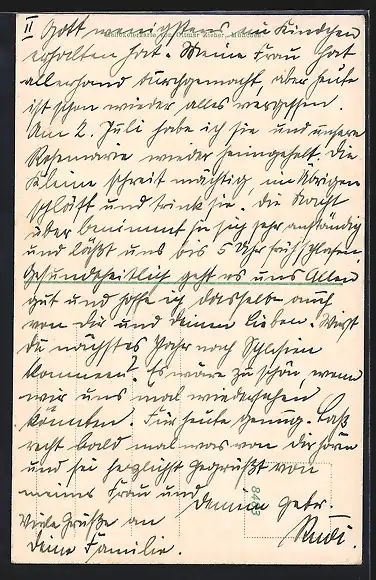 II Gott wenigstens ein Kindchen
erhalten hat. Meine Frau hat
allerhand durchgemacht, aber heute
ist schon wieder alles vergessen.
Am 2. Juli habe ich sie und unsere
Rosemarie wieder heimgeholt. Die
Kleine schreit mächtig im Übrigen
schläft und trinkt sie. die Nacht
über benimmt sie sich sehr anständig
und läßt uns bis 5 Uhr früh schlafen
Gesundheitlich geht es uns Allen
gut und hoffe ich dasselbe auch
von Dir und Deinen Lieben. Wirst
Du nächstes Jahr nach Schlesien
kommen? Es wäre zu schön, wenn
wir uns mal wiedersehen
könnten. Für heute genug. Laß
recht bald mal was von Dir hören
und sei herzlichst gegrüßt von
meine Frau und
Deinem gebr.
Viele Grüße an
Rudi.
Deine Familie.